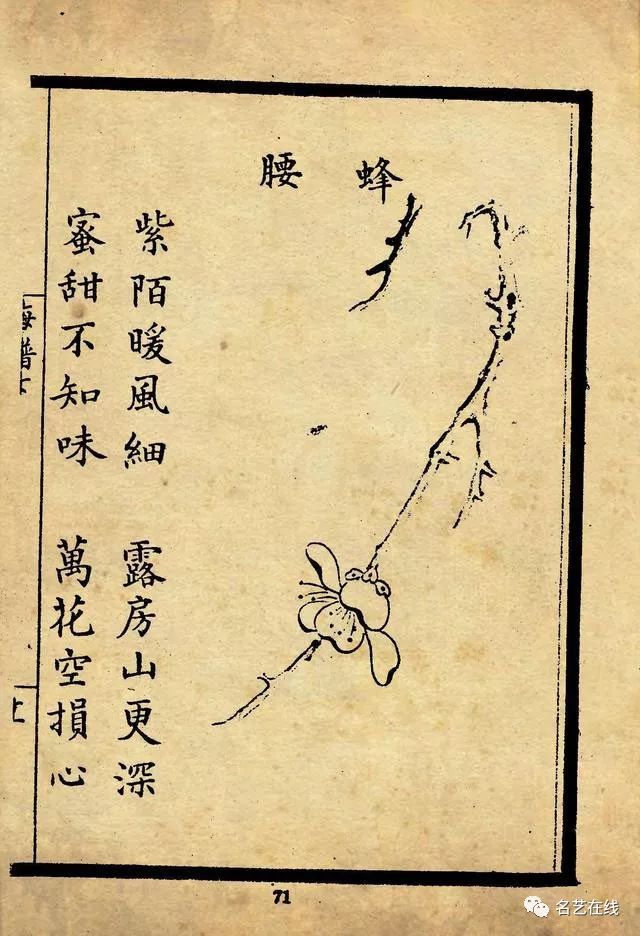 蜂腰
紫陌暖風細　露房山更深
蜜甜不知味　萬花空損心
梅譜
上
71
名艺在线